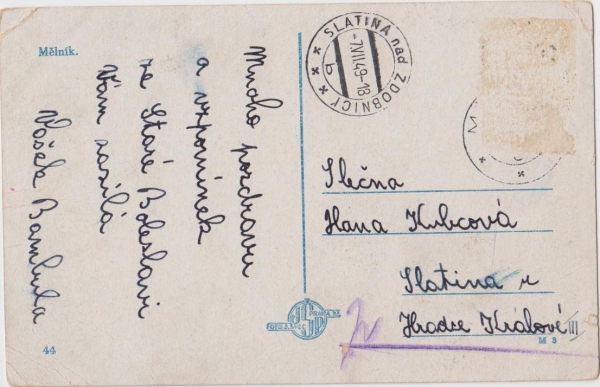 Mělník.
Mnoho pozdravů
a vzpomínek
ze Staré Boleslavi
Vám zasílá
Vašek Bambula
44
SLATINA nad ZDOBNICÍ
-7.VII.49-18
b
M
Slečna
Hana Kubcová
Slatina u
Hradce Králové III
M 3